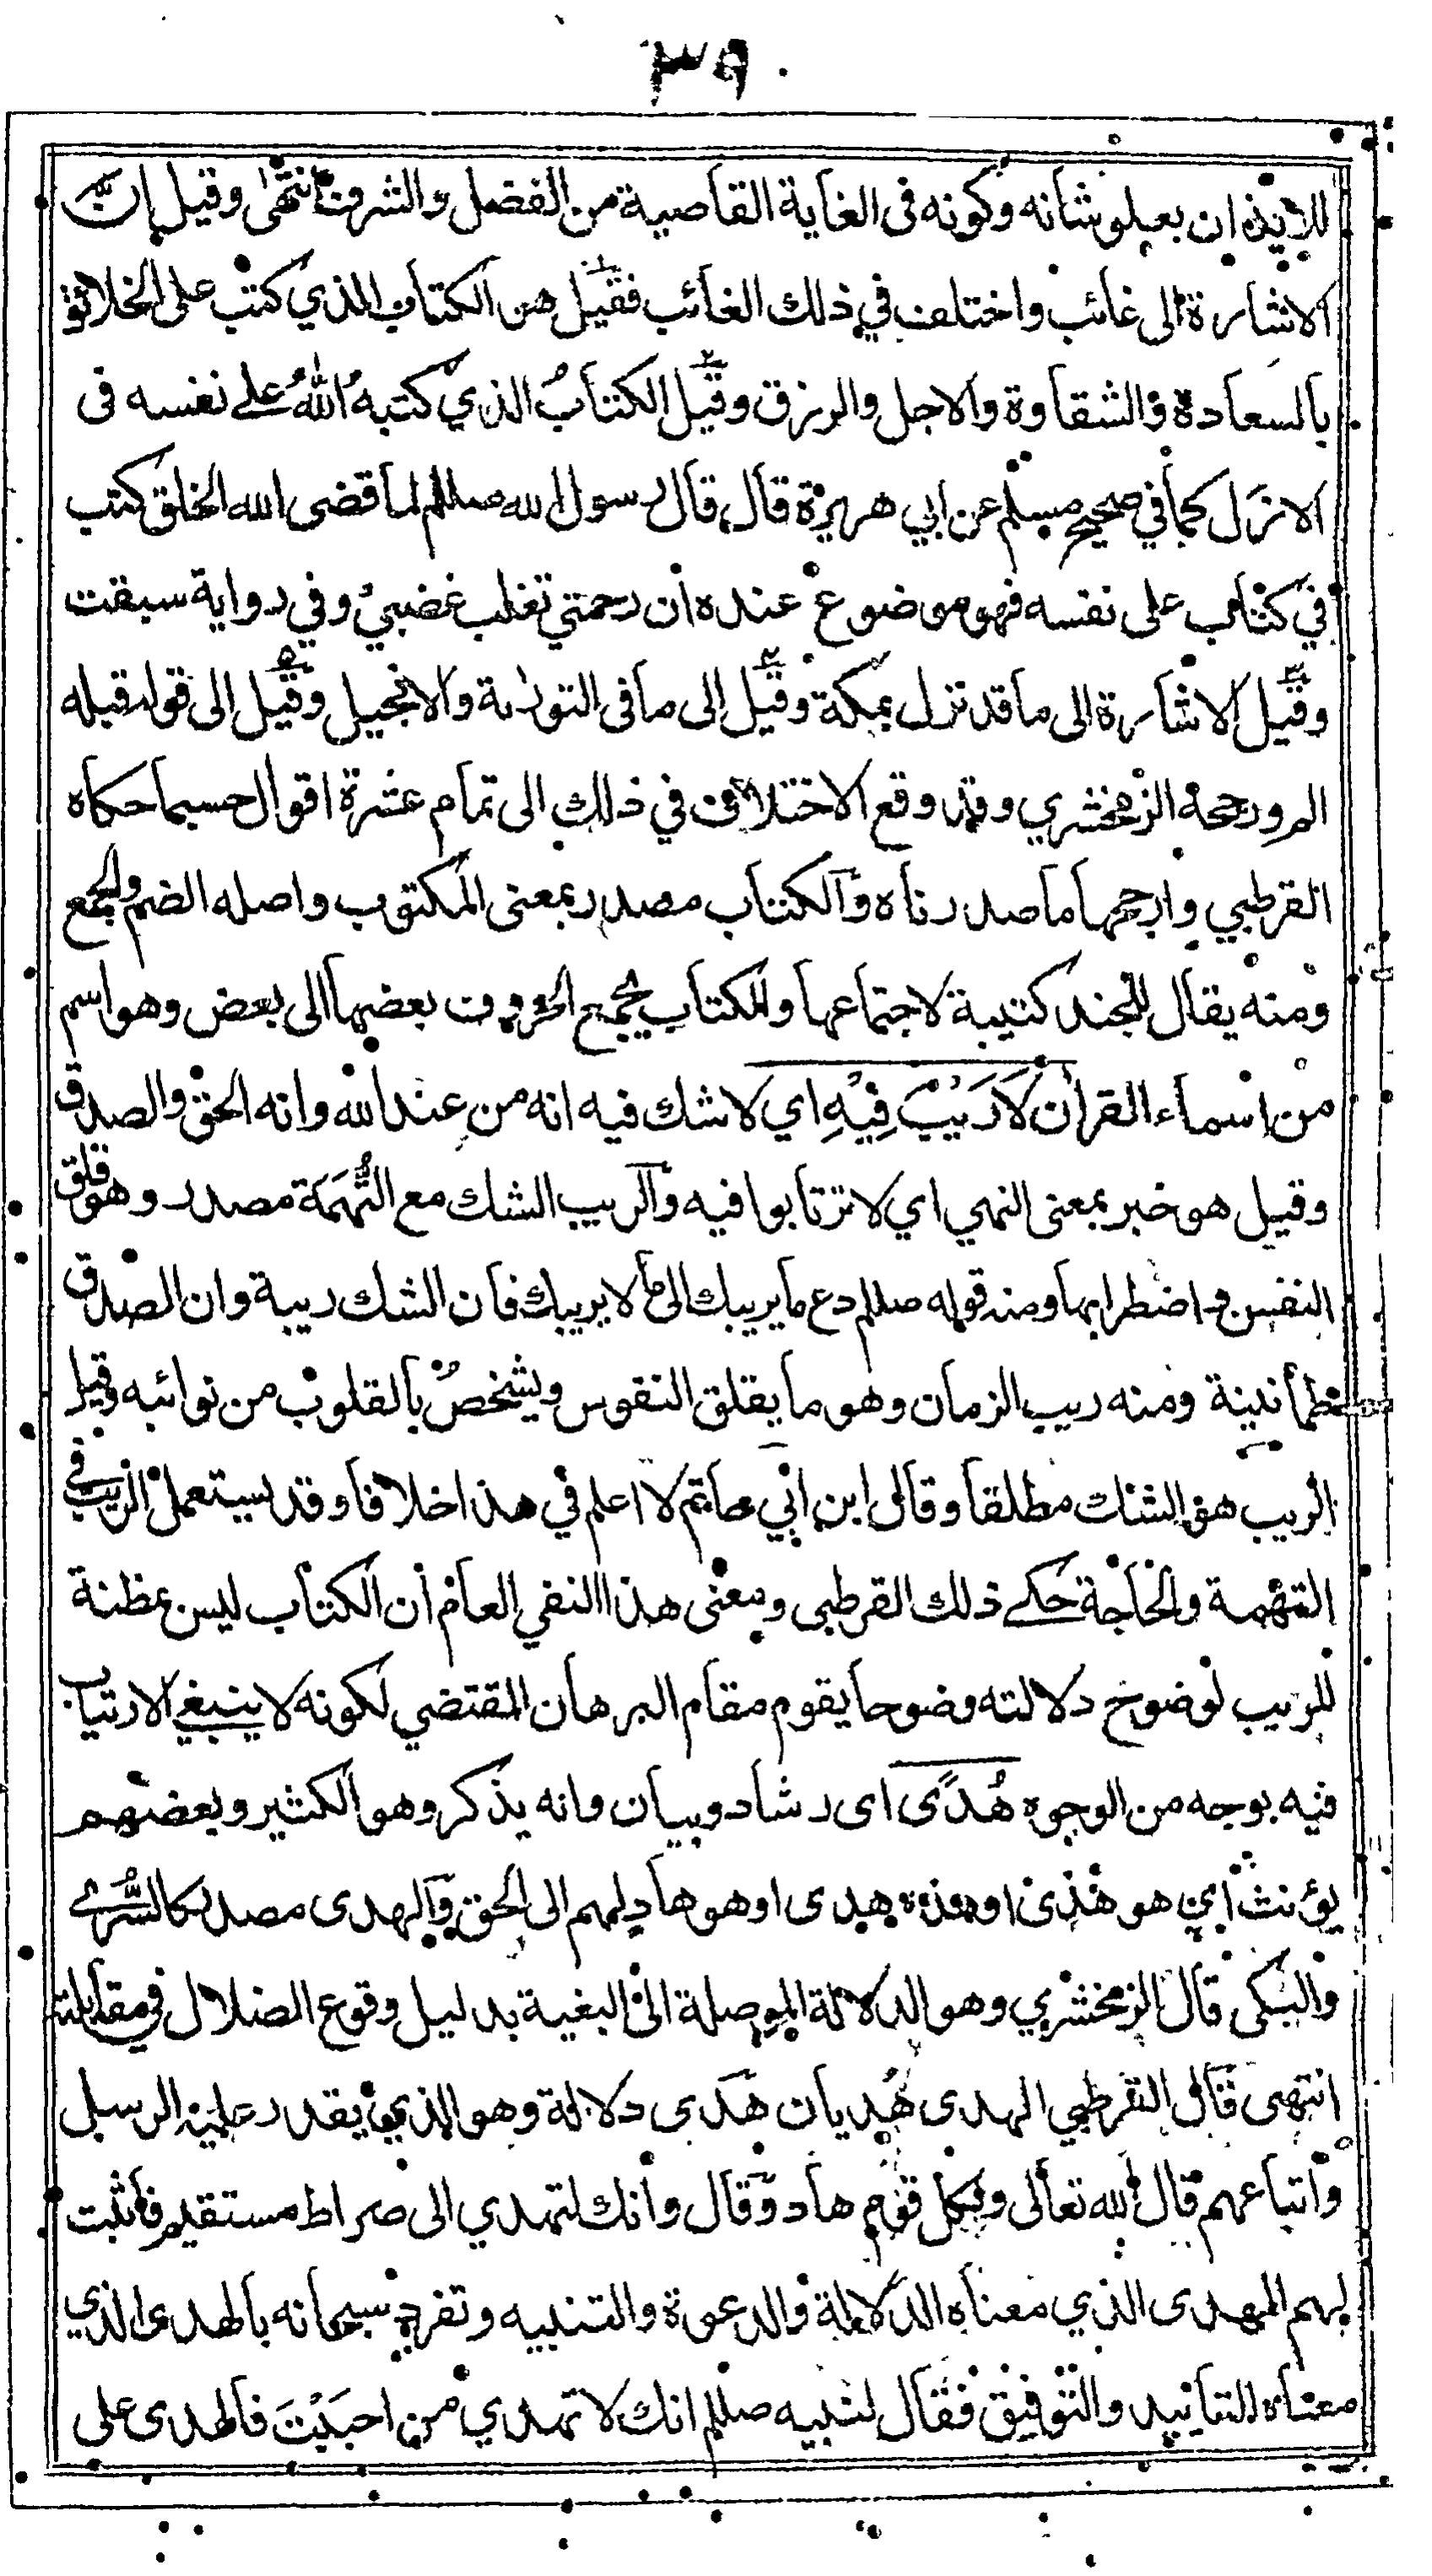 ٣٩
للايذان بعلو شأنه وكونه فى الغاية القاصية من الفضل والشرف انتهٰى وقيل إن
الاشارة الى غائب واختلف في ذلك الغائب فقيل هو الكتاب الذي كتب على الخلائق
بالسعادة والشقاوة والاجل والرزق وقيل الكتابُ الذي كتبه اللهُ على نفسه فى
الازل كما في صحيح مسلم عن ابي هريرة قال قال رسول الله صللم لما قضى الله الخلق كتب
في كتاب على نفسه فهو موضوع عنده ان رحمتي تغلب غضبي وفي رواية سبقت
وقيل الاشارة الى ما قد نزل بمكة وقيل الى ما فى التورٰىة والانجيل وقيل الى قوله قبله
الم ورجحه الزمخشري وقد وقع الاختلاف في ذلك الى تمام عشرة اقوال حسبما حكاه
القرطبي وارجحها ما صدرناه والكتاب مصدر بمعنى المكتوب واصله الضم والجمع
ومنه يقال للجند كتيبة لاجتماعها والكتاب يجمع الحروف بعضها الى بعض وهو اسم
من اسماء القرأن لَارَيْبَ فِيْهِ اي لا شك فيه انه من عند الله وانه الحق والصدق
وقيل هو خبر بمعنى النهي اي لا ترتابوا فيه والريب الشك مع التُّهَمَة مصدر وهو قلق
النفس واضطرابها ومنه قوله صللم دع ما يريبك الى ما لا يريبك فان الشك ريبة وان الصدق
طمأنينة ومنه ريب الزمان وهو ما يقلق النفوس ويشخصُ بالقلوب من نوائبه وقيل
الريب هو الشك مطلقا وقال ابن ابي حاتم لا اعلم في هذا خلافا وقد يستعمل الريب في
التهمة والحاجة حكے ذلك القرطبى ومعنى هذا النفي العام أن الكتاب ليس بمظنة
للريب لوضوح دلالته وضوحا يقوم مقام البرهان المقتضي لكونه لا ينبغي الارتياب
فيه بوجه من الوجوه هُدًى اى رشاد وبيان وانه يذكر وهو الكثير وبعضهم
يؤنث اي هو هدى او هذه هدى او هو هاد لهم الى الحق والهدى مصدر كالسُّرٰى
والبكى قال الزمخشري وهو الدلالة الموصلة الى البغية بدليل وقوع الضلال في مقابلته
انتهى قال القرطبي الهدى هُديان هدى دلالة وهو الذي يقدر عليه الرسل
واتباعهم قال الله تعالى ولكل قوم هاد وقال وانك لتهدي الى صراط مستقيم فأثبت
لهم الهدى الذي معناه الدلالة والدعوة والتنبيه وتفرد سبحانه بالهدى الذي
معناه التائيد والتوفيق فقال لنبيه صللم انك لا تهدي من احبَبْتَ فالهدى على